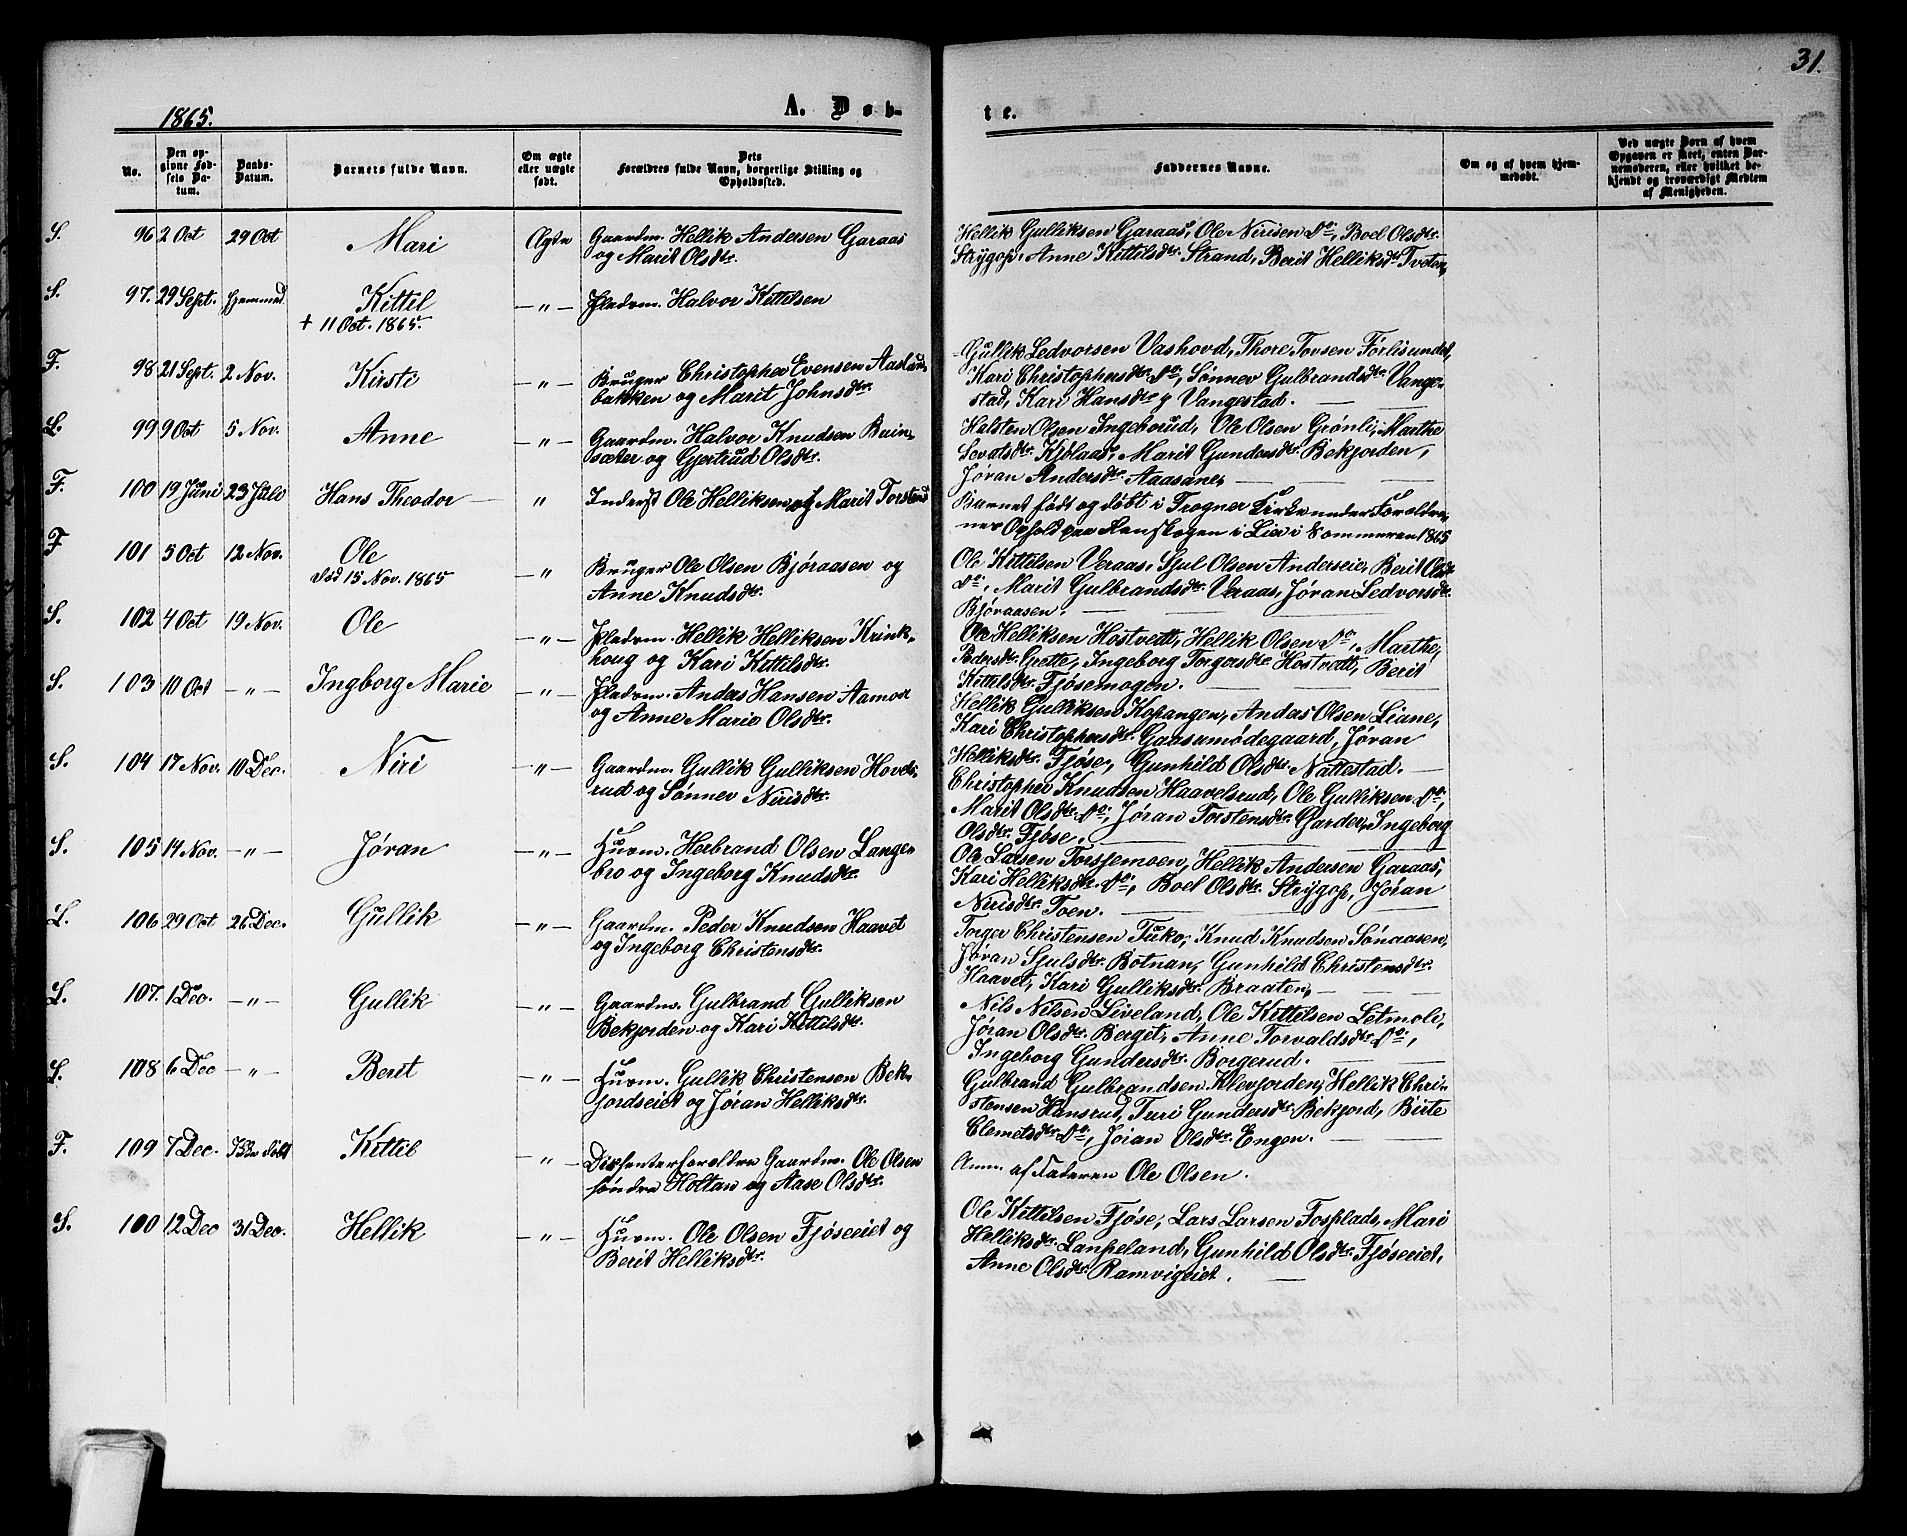 31.
1865.
A. Døb-
te.
No.
Den opgivne Fødsels Datum.
Daabs-Datum.
Barnets fulde Navn.
Om ægte eller uægte født.
Dets Forældres fulde Navn, borgerlige Stilling og Opholdssted.
Faddernes Navne.
Om og af hvem hjemmedøbt.
Ved uægte Børn af hvem Opgaven er skeet, enten Barnemoderen, eller hvilket bekjendt og troværdigt Medlem af Menigheden.
S. 96 2 Oct 29 Oct Mari Ægte Gaardm. Hellik Andersen Garaas
og Marit Olsdtr.
Hellik Gulliksen Garaas, Ole Nirisen do, Boel Olsdtr.
Strygop, Anne Kittilsdtr. Strand, Berit Helliksdtr Tveten
S. 97. 29 Sept. hjemmed. Kittil — " — Pladsm. Halvor Kittilsen
+ 11 Oct. 1865.
F. 98 21 Sept. 2 Nov. Kirsti — " — Bruger Christopher Evensen Aaslands
bakken og Marit Johnsdtr.
Gullik Ledvorsen Vashovd, Thore Tovsen Førlisundet,
Kari Christophersdtr. do, Sønnev Gulbrandsdtr. Vange-
stad, Kari Hansdtr Vangestad.
L. 99 9 Oct 5 Nov. Anne — " — Gaardm. Halvor Knudsen Buin-
sæter og Gjertrud Olsdtr.
Halsten Olsen Ingeborud, Ole Olsen Grønli, Marthe
Kjølaas, Marit Gundersdtr. Bekjorden,
Jøran Andersdtr. Aaasane,
F. 100 19 Juni 23 Juli Hans Theodor " Inderst Ole Helliksen og Marit Torstensd
Barnet født og døbt i Frogner Kirke under Foreldre-
nes Ophold paa i Lier i Sommeren 1865
F 101 5 Oct 12 Nov. Ole — " Bruger Ole Olsen Bjøraasen og
død 15 Nov. 1865
Anne Knudsdtr.
Ole Kittilsen Veraas, Sjul Olsen Anderseie, Berit Olsdtr
do, Marit Gulbrandsdtr. Veraas, Jøran Ledvorsdtr.
Bjøraasen.
S. 102 4 Oct 19 Nov. Ole — " — Pladsm. Hellik Helliksen Krink-
houg og Kari Kittilsdtr.
Ole Helliksen Hostvedt, Hellik Olsen do, Marthe
Pedersdtr. Grette, Ingeborg Torgersdtr. Hostvedt, Berit
Kittilsdtr. Fjøsemogen.
S. 103 10 Oct — " — Ingborg Marie — " — Pladsm. Anders Hansen Aamot
og Anne Marie Olsdtr.
Hellik Gulliksen Kopangen, Anders Olsen Liane,
Kari Christophersdtr. Gaasemødegaard, Jøran
Helliksdtr. Fjøse, Gunhild Olsdtr. Nattestad.
S. 104 17 Nov. 10 Dec. Niri — " — Gaardm. Gullik Gulliksen Hovels-
rud og Sønnev Nirisdtr.
Christopher Knudsen Haavelsrud, Ole Gulliksen do,
Marit Olsdtr. do, Jøran Torstensdtr. Garder, Ingeborg
Olsdtr. Fjøse.
S. 105 14 Nov. — " — Jøran — " — Huusm. Herbrand Olsen Lange-
bro og Ingeborg Knudsdtr.
Ole Larsen Torsjemoen, Hellik Andersen Garaas,
Kari Helliksdtr. do, Boel Olsdtr. Strygop, Jøran
Nirisdtr. Toen.
L. 106 29 Oct 26 Dec. Gullik — " — Gaardm. Peder Knudsen Haavet
og Ingeborg Christensdtr.
Torger Christensen Tuko, Knud Knudsen Sønaasen,
Jøran Sjulsdtr. Botnan, Gunhild Christensdtr.
Haavet, Kari Gulliksdtr. Braaten,
L. 107. 1 Dec. — " — Gullik — " — Gaardm. Gulbrand Gulliksen
Bekjorden og Kari Kittilsdtr.
Nils Nilsen Liveland, Ole Kittilsen Letmoli,
Jøran Olsdtr. Berget, Anne Torvaldsdtr. do,
Ingeborg Gundersdtr. Borgerud.
L. 108 6 Dec — " — Berit — " — Huusm. Gullik Christensen Bek-
jordseiet og Jøran Helliksdtr.
Gulbrand Gulbrandsen Klevjorden, Hellik Chri-
stensen Hansrud, Turi Gundersdtr. Bekjord, Birte
Clemetsdtr. do, Jøran Olsdtr. Engen.
F. 109 7 Dec. Kittil — " — Dissenterforeldre Gaardm. Ole Olsen
søndre Holtan og Aase Olsdtr.
Anm. af Faderen Ole Olsen.
S. 100 12 Dec 31 Dec. Hellik — " — Huusm. Ole Olsen Fjøseeiet og
Berit Helliksdtr.
Ole Kittilsen Fjøse, Lars Larsen Fosplads, Mari
Helliksdtr. Landeland, Gunhild Olsdtr. Fjøseeiet,
Anne Olsdtr. Ramvigeiet.